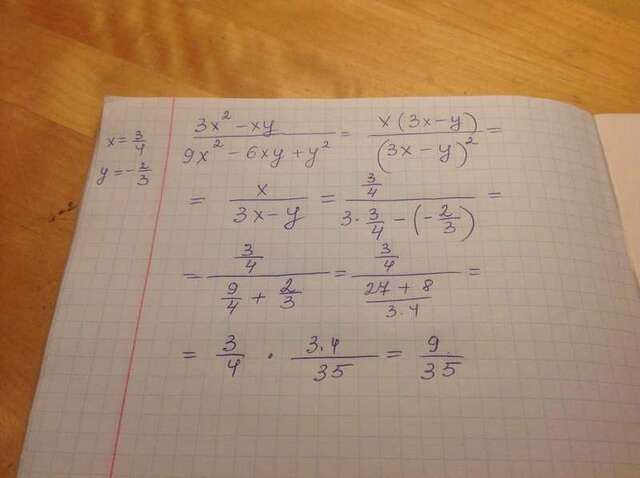 x = 3/4
y = -2/3
(3x² - xy)/(9x² - 6xy + y²) = x(3x - y)/(3x - y)² =
= x/(3x - y) = (3/4)/(3 · 3/4 - (-2/3)) =
= (3/4)/(9/4 + 2/3) = (3/4)/((27 + 8)/(3.4)) =
= 3/4 · 3.4/35 = 9/35